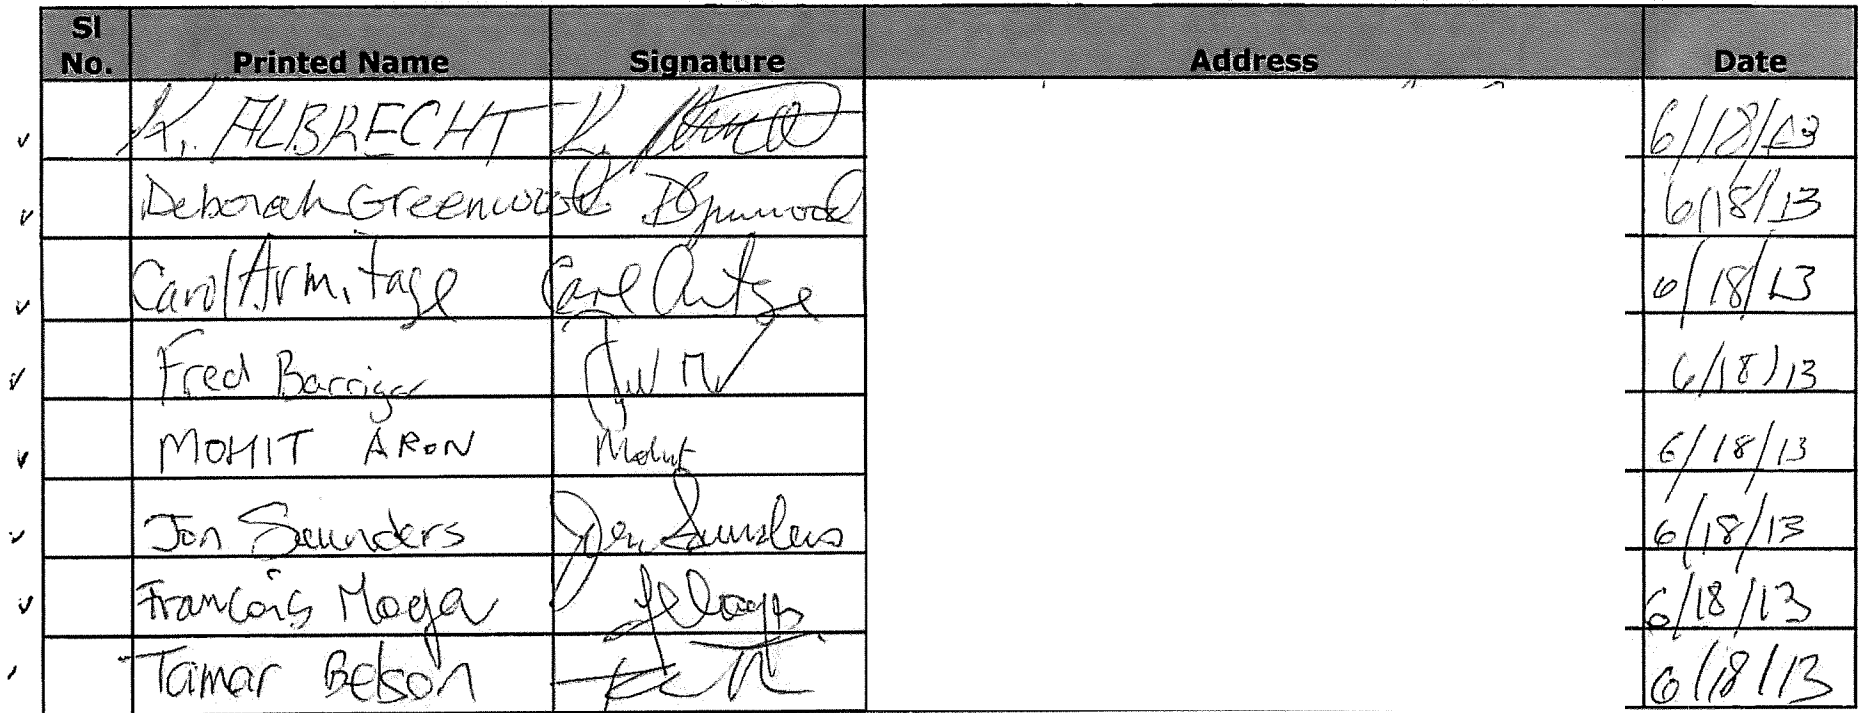 Sl No. Printed Name Signature Address Date
K. ALBRECHT K. 6/18/13
Deborah Greenwood DGreenwood 6/18/13
Carol Armitage Carol 6/18/13
Fred Barriger 6/18/13
MOHIT ARON Mohit 6/18/13
Jon Saunders Jon Saunders 6/18/13
Francois Moya 6/18/13
Tamar Belson 6/18/13